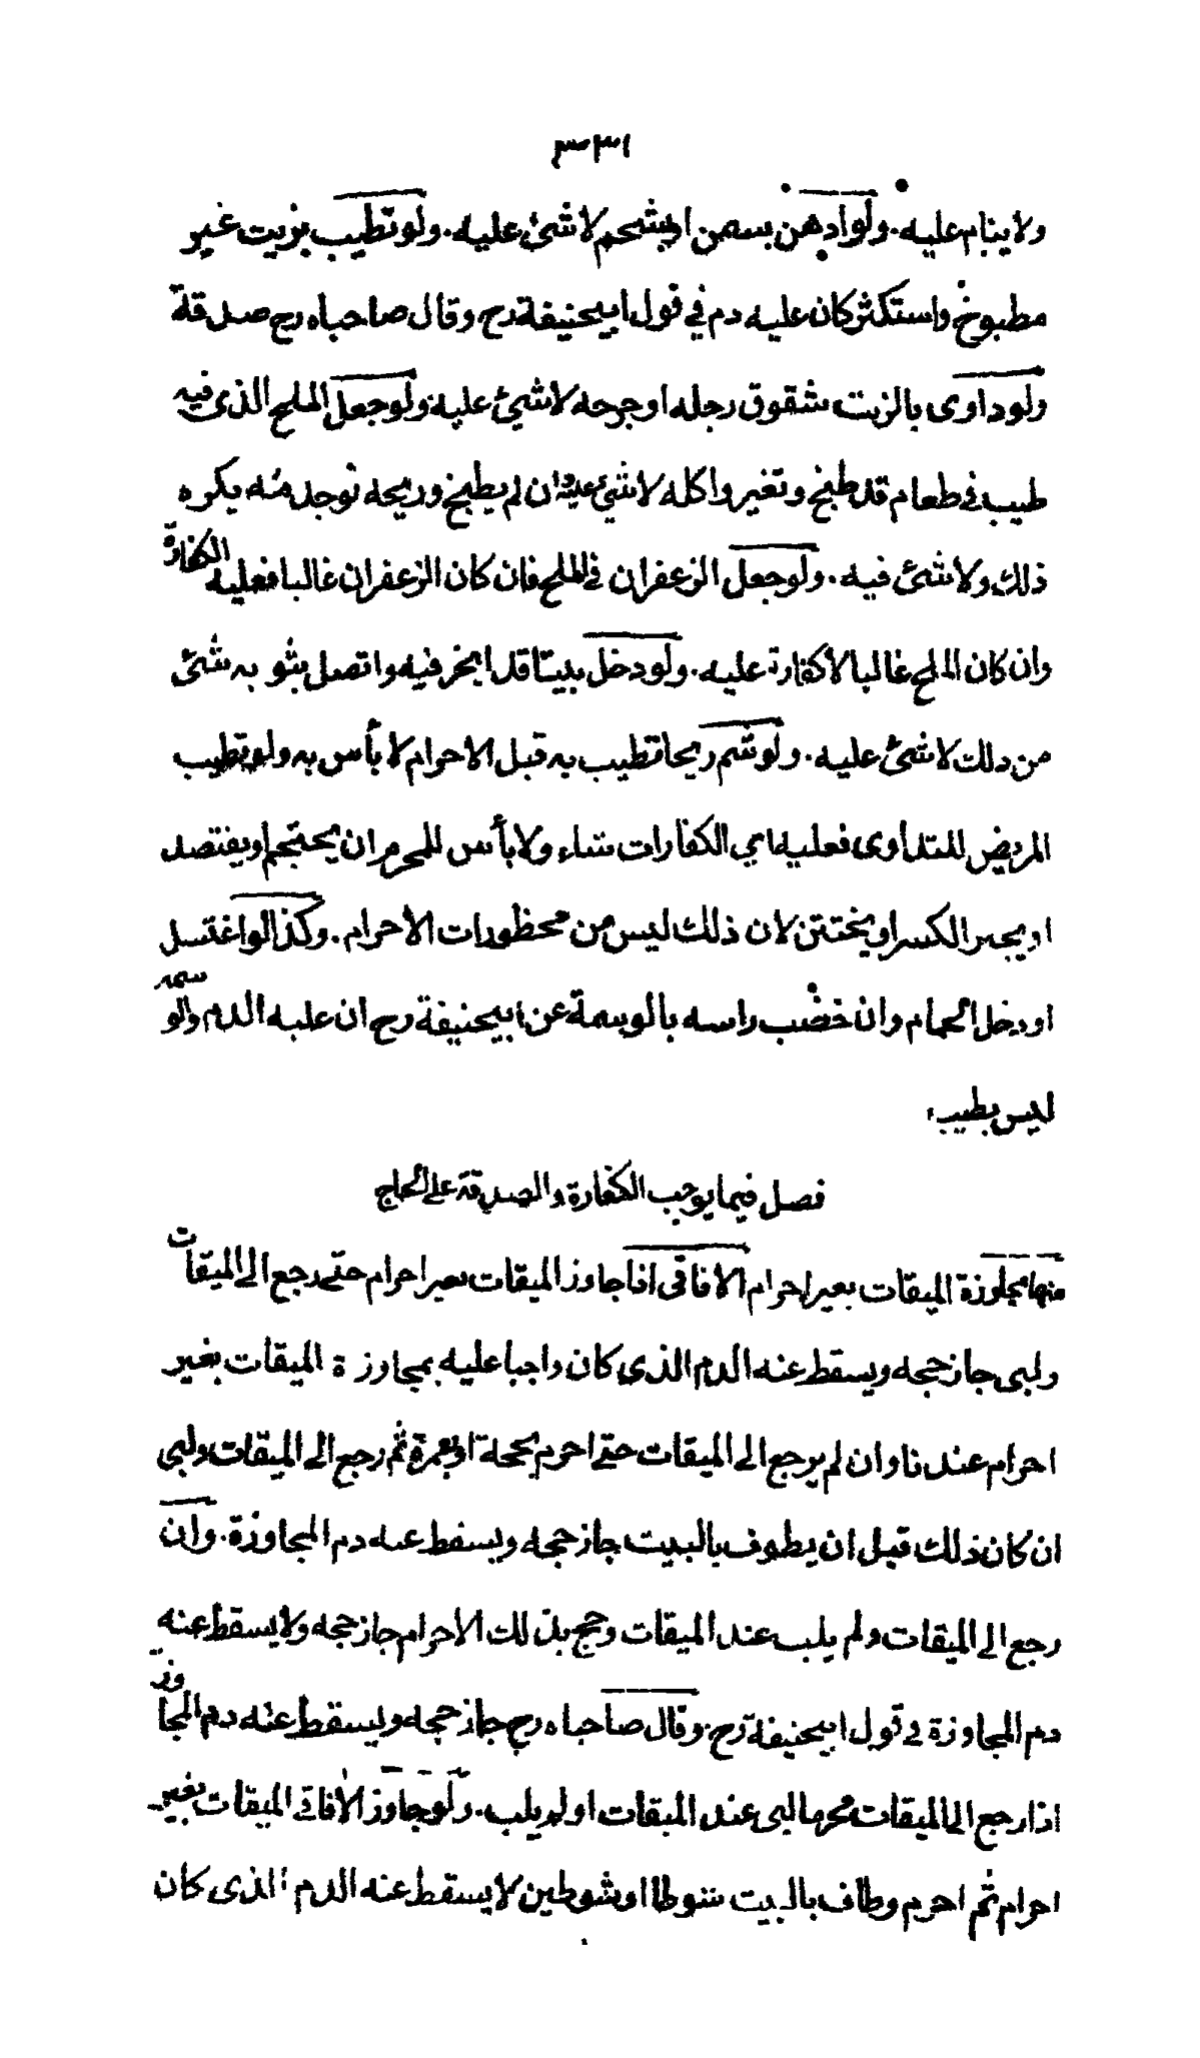 ٣٣١
ولا ينام عليه. ولو ادهن بسمن او بشحم لا شئ عليه. ولو تطيب بزيت غير
مطبوخ واستكثر كان عليه دم في قول ابيحنيفة رح وقال صاحباه رح صدقة
ولو داوى بالزيت شقوق رجله او جرحه لا شئ عليه ولو جعل الملح الذى فيه
طيب في طعام قد طبخ وتغير واكله لا شئ عليه وان لم يطبخ وريحه توجد منه يكره
ذلك ولا شئ فيه. ولو جعل الزعفران في الملح فان كان الزعفران غالبا فعليه الكفارة
وان كان الملح غالبا لا كفارة عليه. ولو دخل بيتا قد ابخر فيه واتصل بثوبه شئ
من ذلك لا شئ عليه. ولو شم ريحا تطيب به قبل الاحرام لا بأس به ولو تطيب
المريض للتداوى فعليه اي الكفارات شاء ولا بأس للمحرم ان يحتجم او يفتصد
او يجبر الكسر او يختتن لان ذلك ليس من محظورات الاحرام. وكذا لو اغتسل
او دخل الحمام وان خضب راسه بالوسمة عن ابيحنيفة رح ان عليه الدم والوسمة
ليس بطيب،
فصل فيما يوجب الكفارة والصدقة على الحاج
منها مجاوزة الميقات بغير احرام الافاقى اذا جاوز الميقات بغير احرام حتى رجع الى الميقات
ولبى جاز حجه ويسقط عنه الدم الذي كان واجبا عليه بمجاوزة الميقات بغير
احرام عندنا وان لم يرجع الى الميقات حتى احرم بحجة او بعمرة ثم رجع الى الميقات ولبى
ان كان ذلك قبل ان يطوف بالبيت جاز حجه ويسقط عنه دم المجاوزة. وان
رجع الى الميقات ولم يلب عند الميقات وحج بذلك الاحرام جاز حجه ولا يسقط عنه
دم المجاوزة في قول ابيحنيفة رح. وقال صاحباه رح جاز حجه ويسقط عنه دم المجاوزة
اذا رجع الى الميقات محرما لبى عند الميقات او لم يلب. ولو جاوز الافاقى الميقات بغير
احرام ثم احرم وطاف بالبيت شوطا او شوطين لا يسقط عنه الدم الذى كان